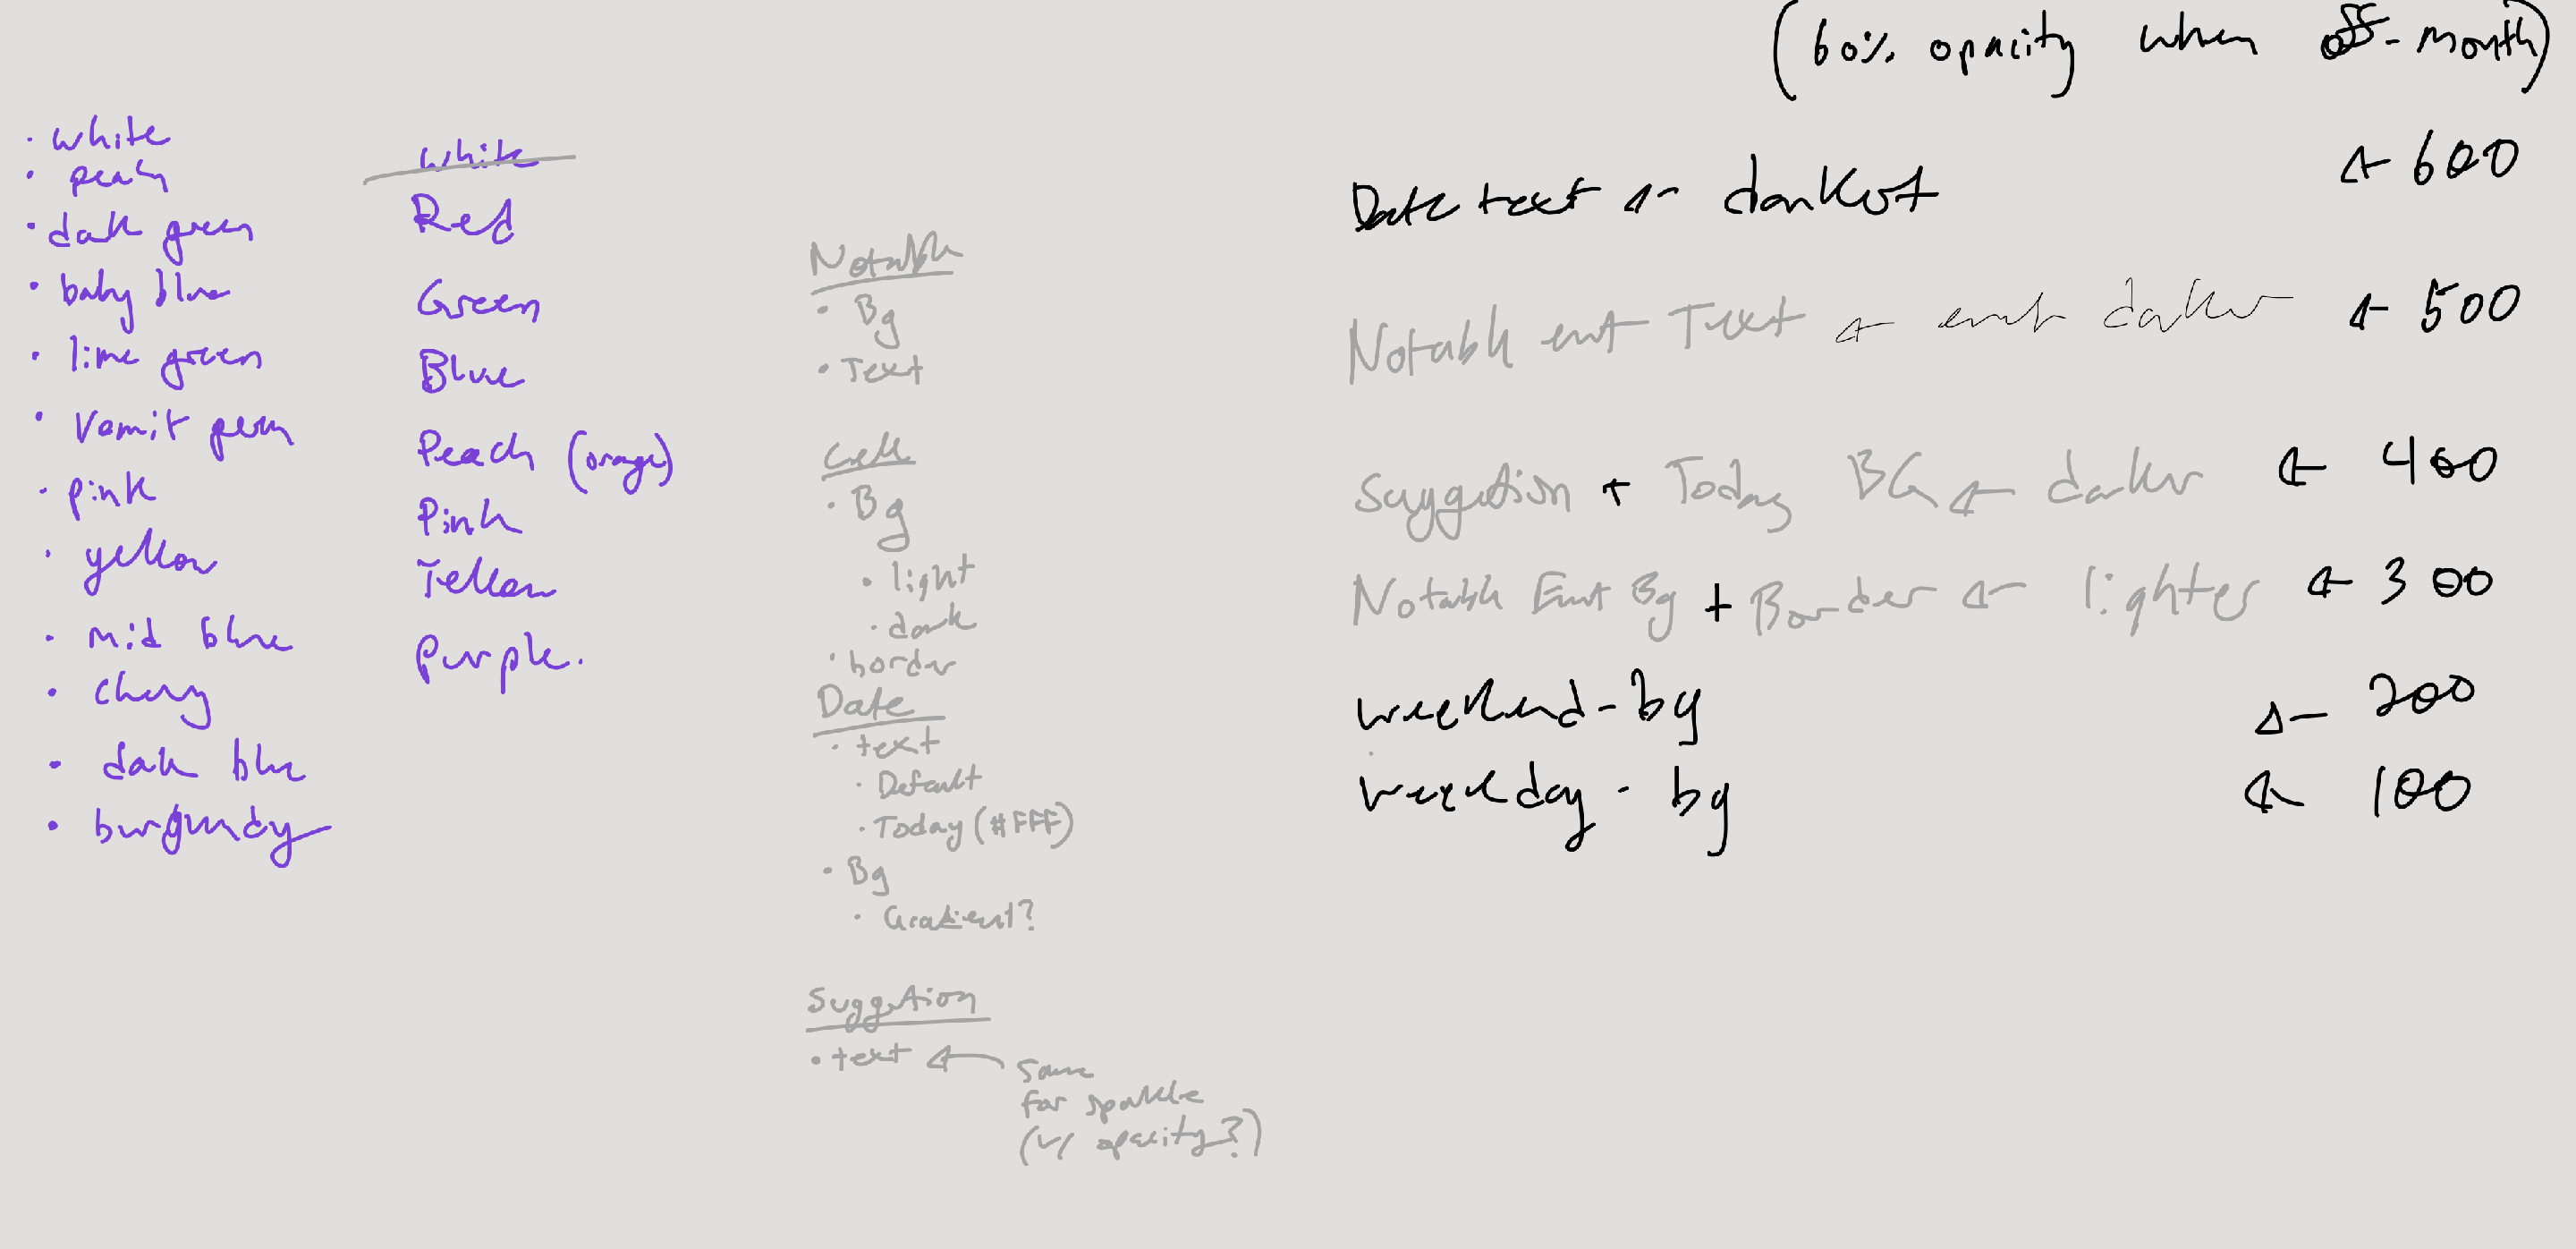 • white
• peach
• dark green
• baby blue
• lime green
• Vomit green
• pink
• yellow
• mid blue
• cherry
• dark blue
• burgundy
white
Red
Green
Blue
Peach (orange)
Pink
Yellow
Purple.
Notable
• Bg
• Text
Cell
• Bg
• light
• dark
• border
Date
• text
• Default
• Today (#FFF)
• Bg
• Gradient?
Suggestion
• text ← same
for sparkle
(w/ opacity?)
(60% opacity when off-month)
Date text ← darkest ← 600
Notable event Text ← even darker ← 500
Suggestion + Today BG ← darker ← 400
Notable Event Bg + Border ← lighter ← 300
weekend-bg ← 200
weekday-bg ← 100